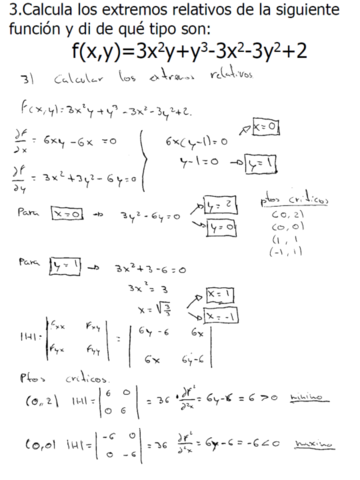 3.Calcula los extremos relativos de la siguiente
función y di de qué tipo son:
f(x,y)=3x²y+y³-3x²-3y²+2
3) Calcular los extremos relativos
f(x,y)=3x²y+y³-3x²-3y²+2.
∂f/∂x = 6xy-6x=0 6x(y-1)=0 → x=0
y-1=0 → y=1
∂f/∂y = 3x²+3y²-6y=0
Para x=0 → 3y²-6y=0 → y=2
y=0
ptos críticos
(0,2)
(0,0)
(1,1
(-1,1)
Para y=1 → 3x²+3-6=0
3x²=3
x=√3/3 → x=1
x=-1
|H|= |Fxx Fxy| = |6y-6 6x|
|Fyx Fyy| |6x 6y-6|
Ptos críticos.
(0,2) |H|= |6 0| = 36 ∂f²/∂²x=6y-6=6>0 mínimo
|0 6|
(0,0) |H|= |-6 0| = 36 ∂f²/∂²x=6y-6=-6<0 máximo
|0 -6|